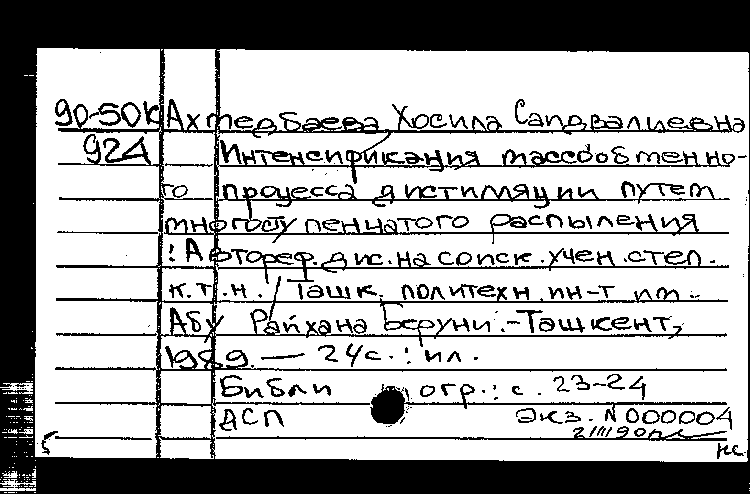 90-50К Ахмедбаева Хосила Саидвалиевна
924 Интенсификация массообменно-
го процесса дистилляции путем
многоступенчатого распыления
: Автореф. дис. на соиск. учен. степ.
к. т. н. / Ташк. политехн. ин-т им.
Абу Райхана Беруни. - Ташкент,
1989. — 24с. : ил.
Библиогр.: с. 23-24
ДСП Экз. N 000004
2/III 90
нс